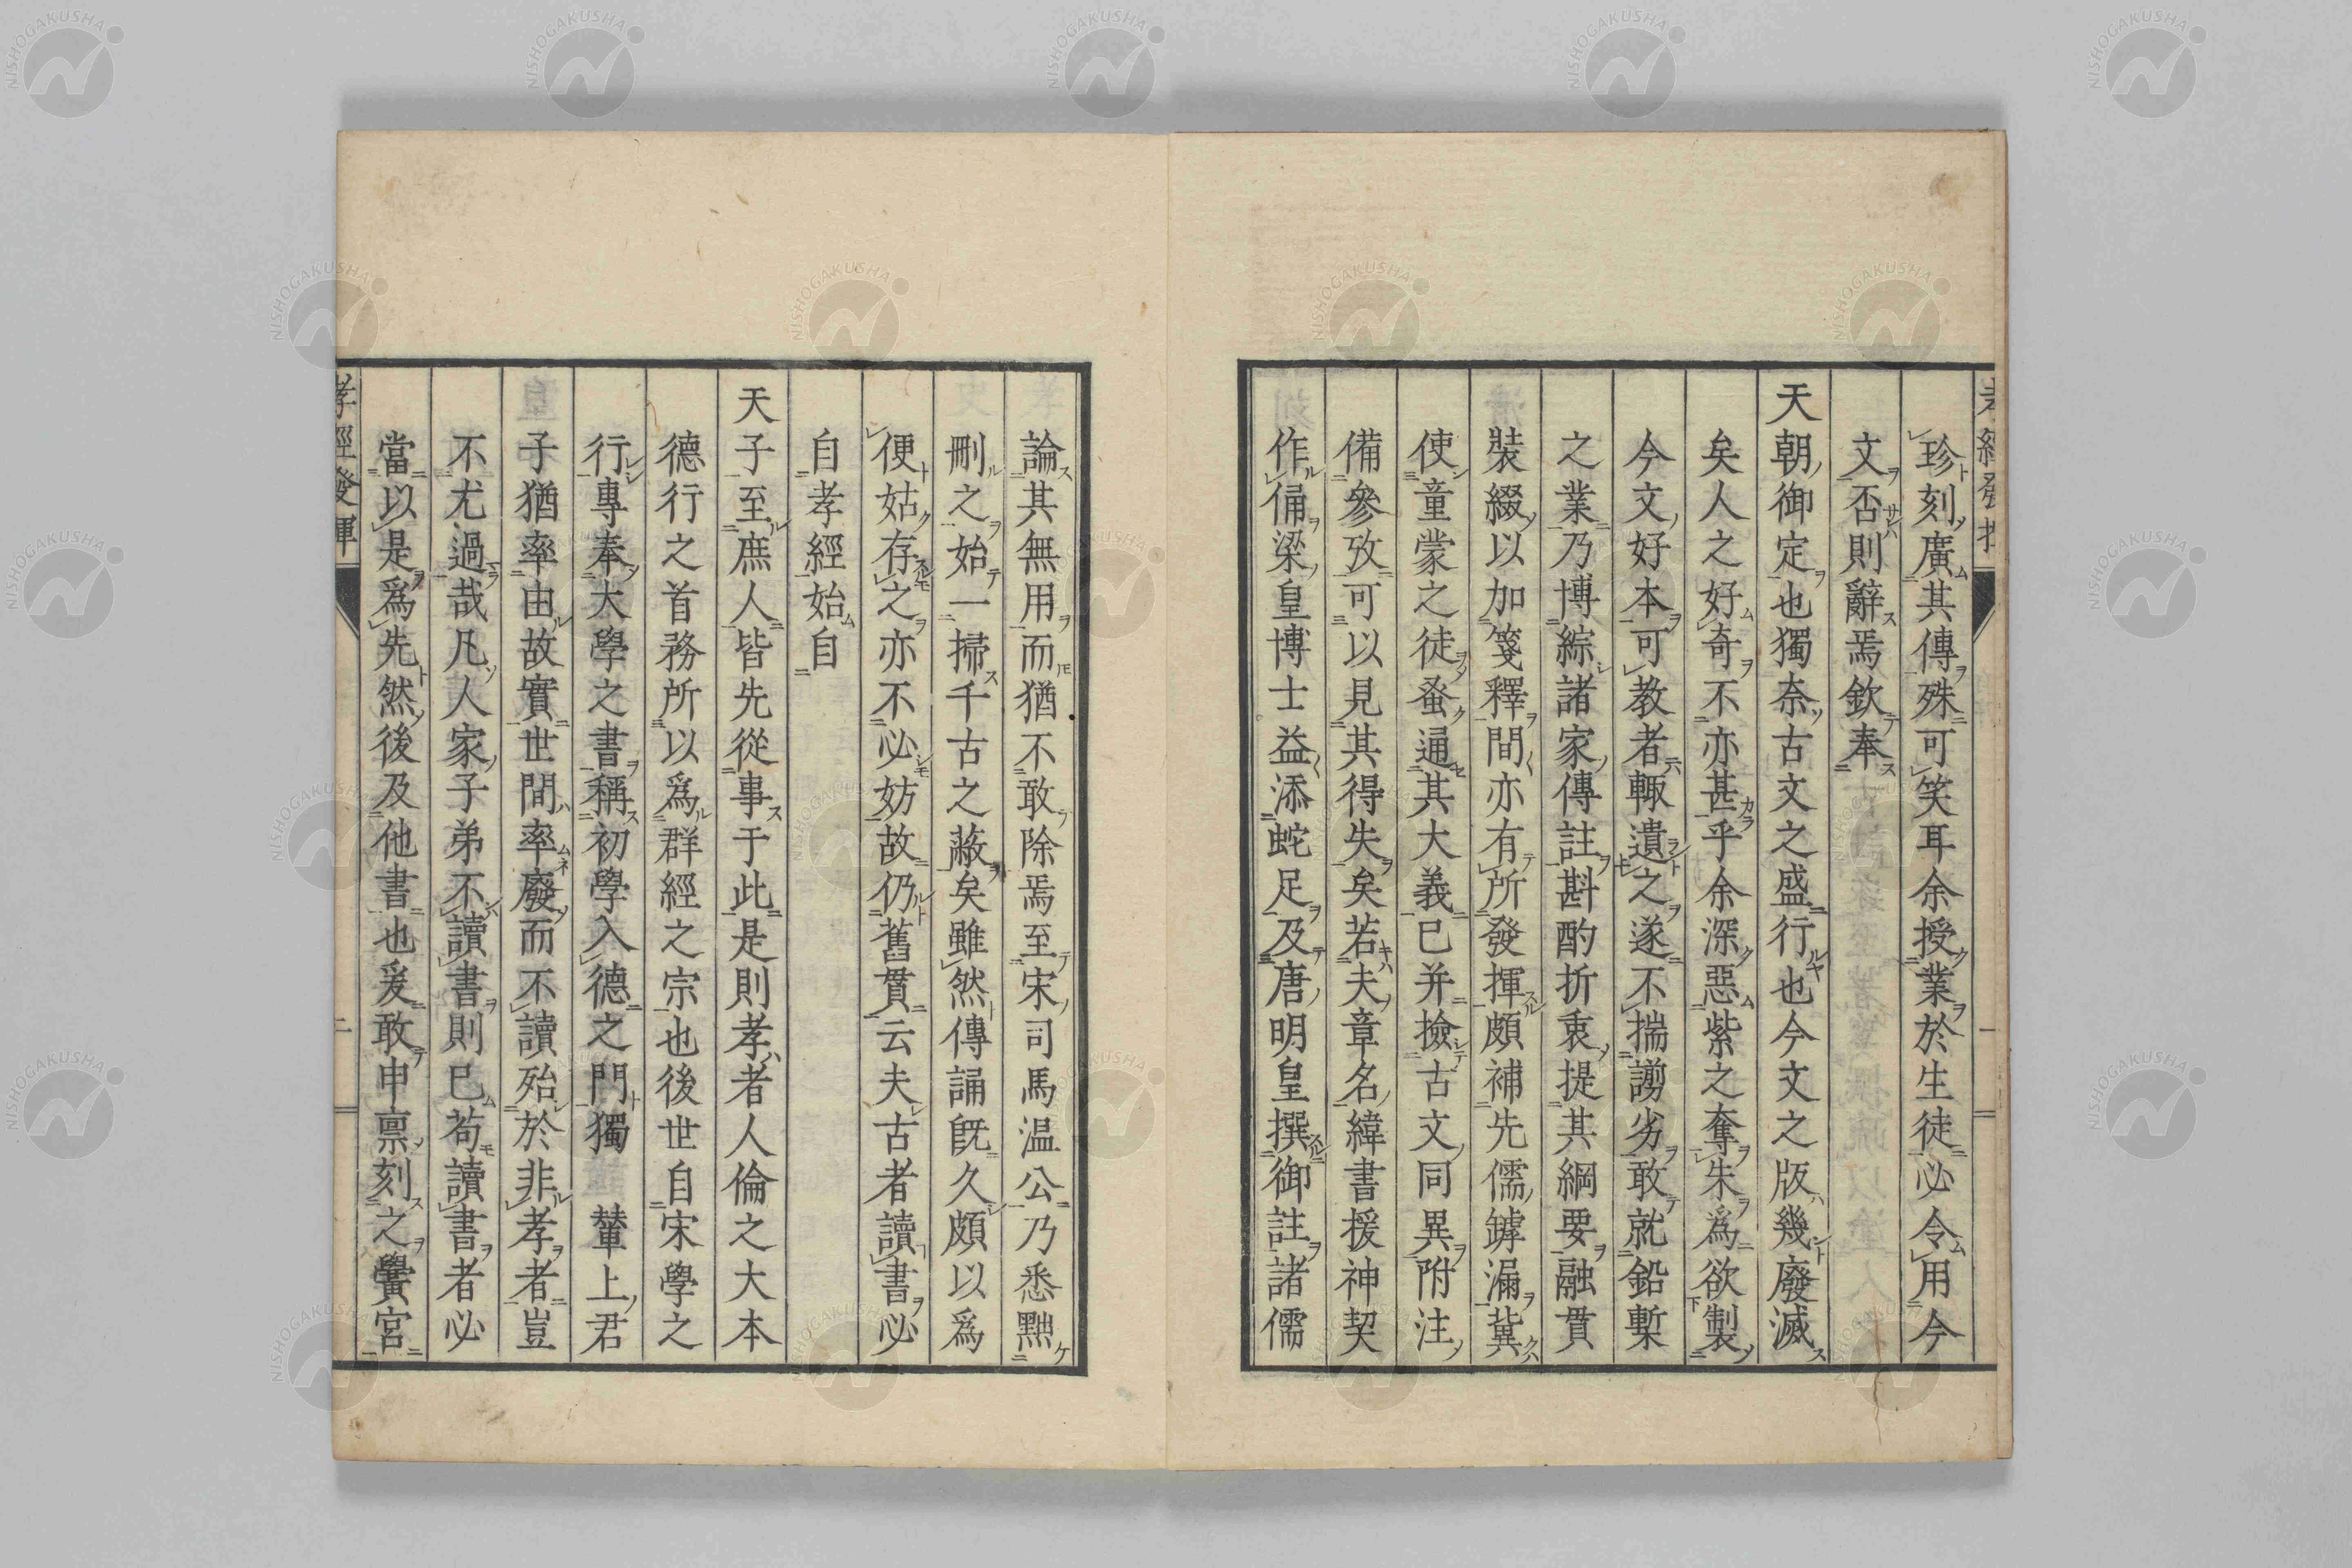 珍刻廣其傳殊可笑耳余授業於生徒必令用今
文否則辭焉欽奉
天朝御定也獨奈古文之盛行也今文之版幾廢滅
矣人之好奇不亦甚乎余深惡紫之奪朱爲欲製
今文好本可教者輙遺之遂不揣謭劣敢就鉛槧
之業乃博綜諸家傳註斟酌折衷提其綱要融貫
裝綴以加箋釋間亦有所發揮頗補先儒罅漏冀
使童蒙之徒蚤通其大義已并撿古文同異附注
備參攷可以見其得失矣若夫章名緯書援神契
作俑梁皇博士益添蛇足及唐明皇撰御註諸儒
論其無用而猶不敢除焉至宋司馬温公乃悉黜
刪之始一掃千古之蔽矣雖然傳誦既久頗以爲
便姑存之亦不必妨故仍舊貫云夫古者讀書必
自孝經始自
天子至庶人皆先從事于此是則孝者人倫之大本
德行之首務所以爲群經之宗也後世自宋學之
行專奉大學之書稱初學入德之門獨 輦上君
子猶率由故實世間率廢而不讀殆於非孝者豈
不尤過哉凡人家子弟不讀書則已苟讀書者必
當以是爲先然後及他書也爰敢申禀刻之黌宮
孝經發揮 二